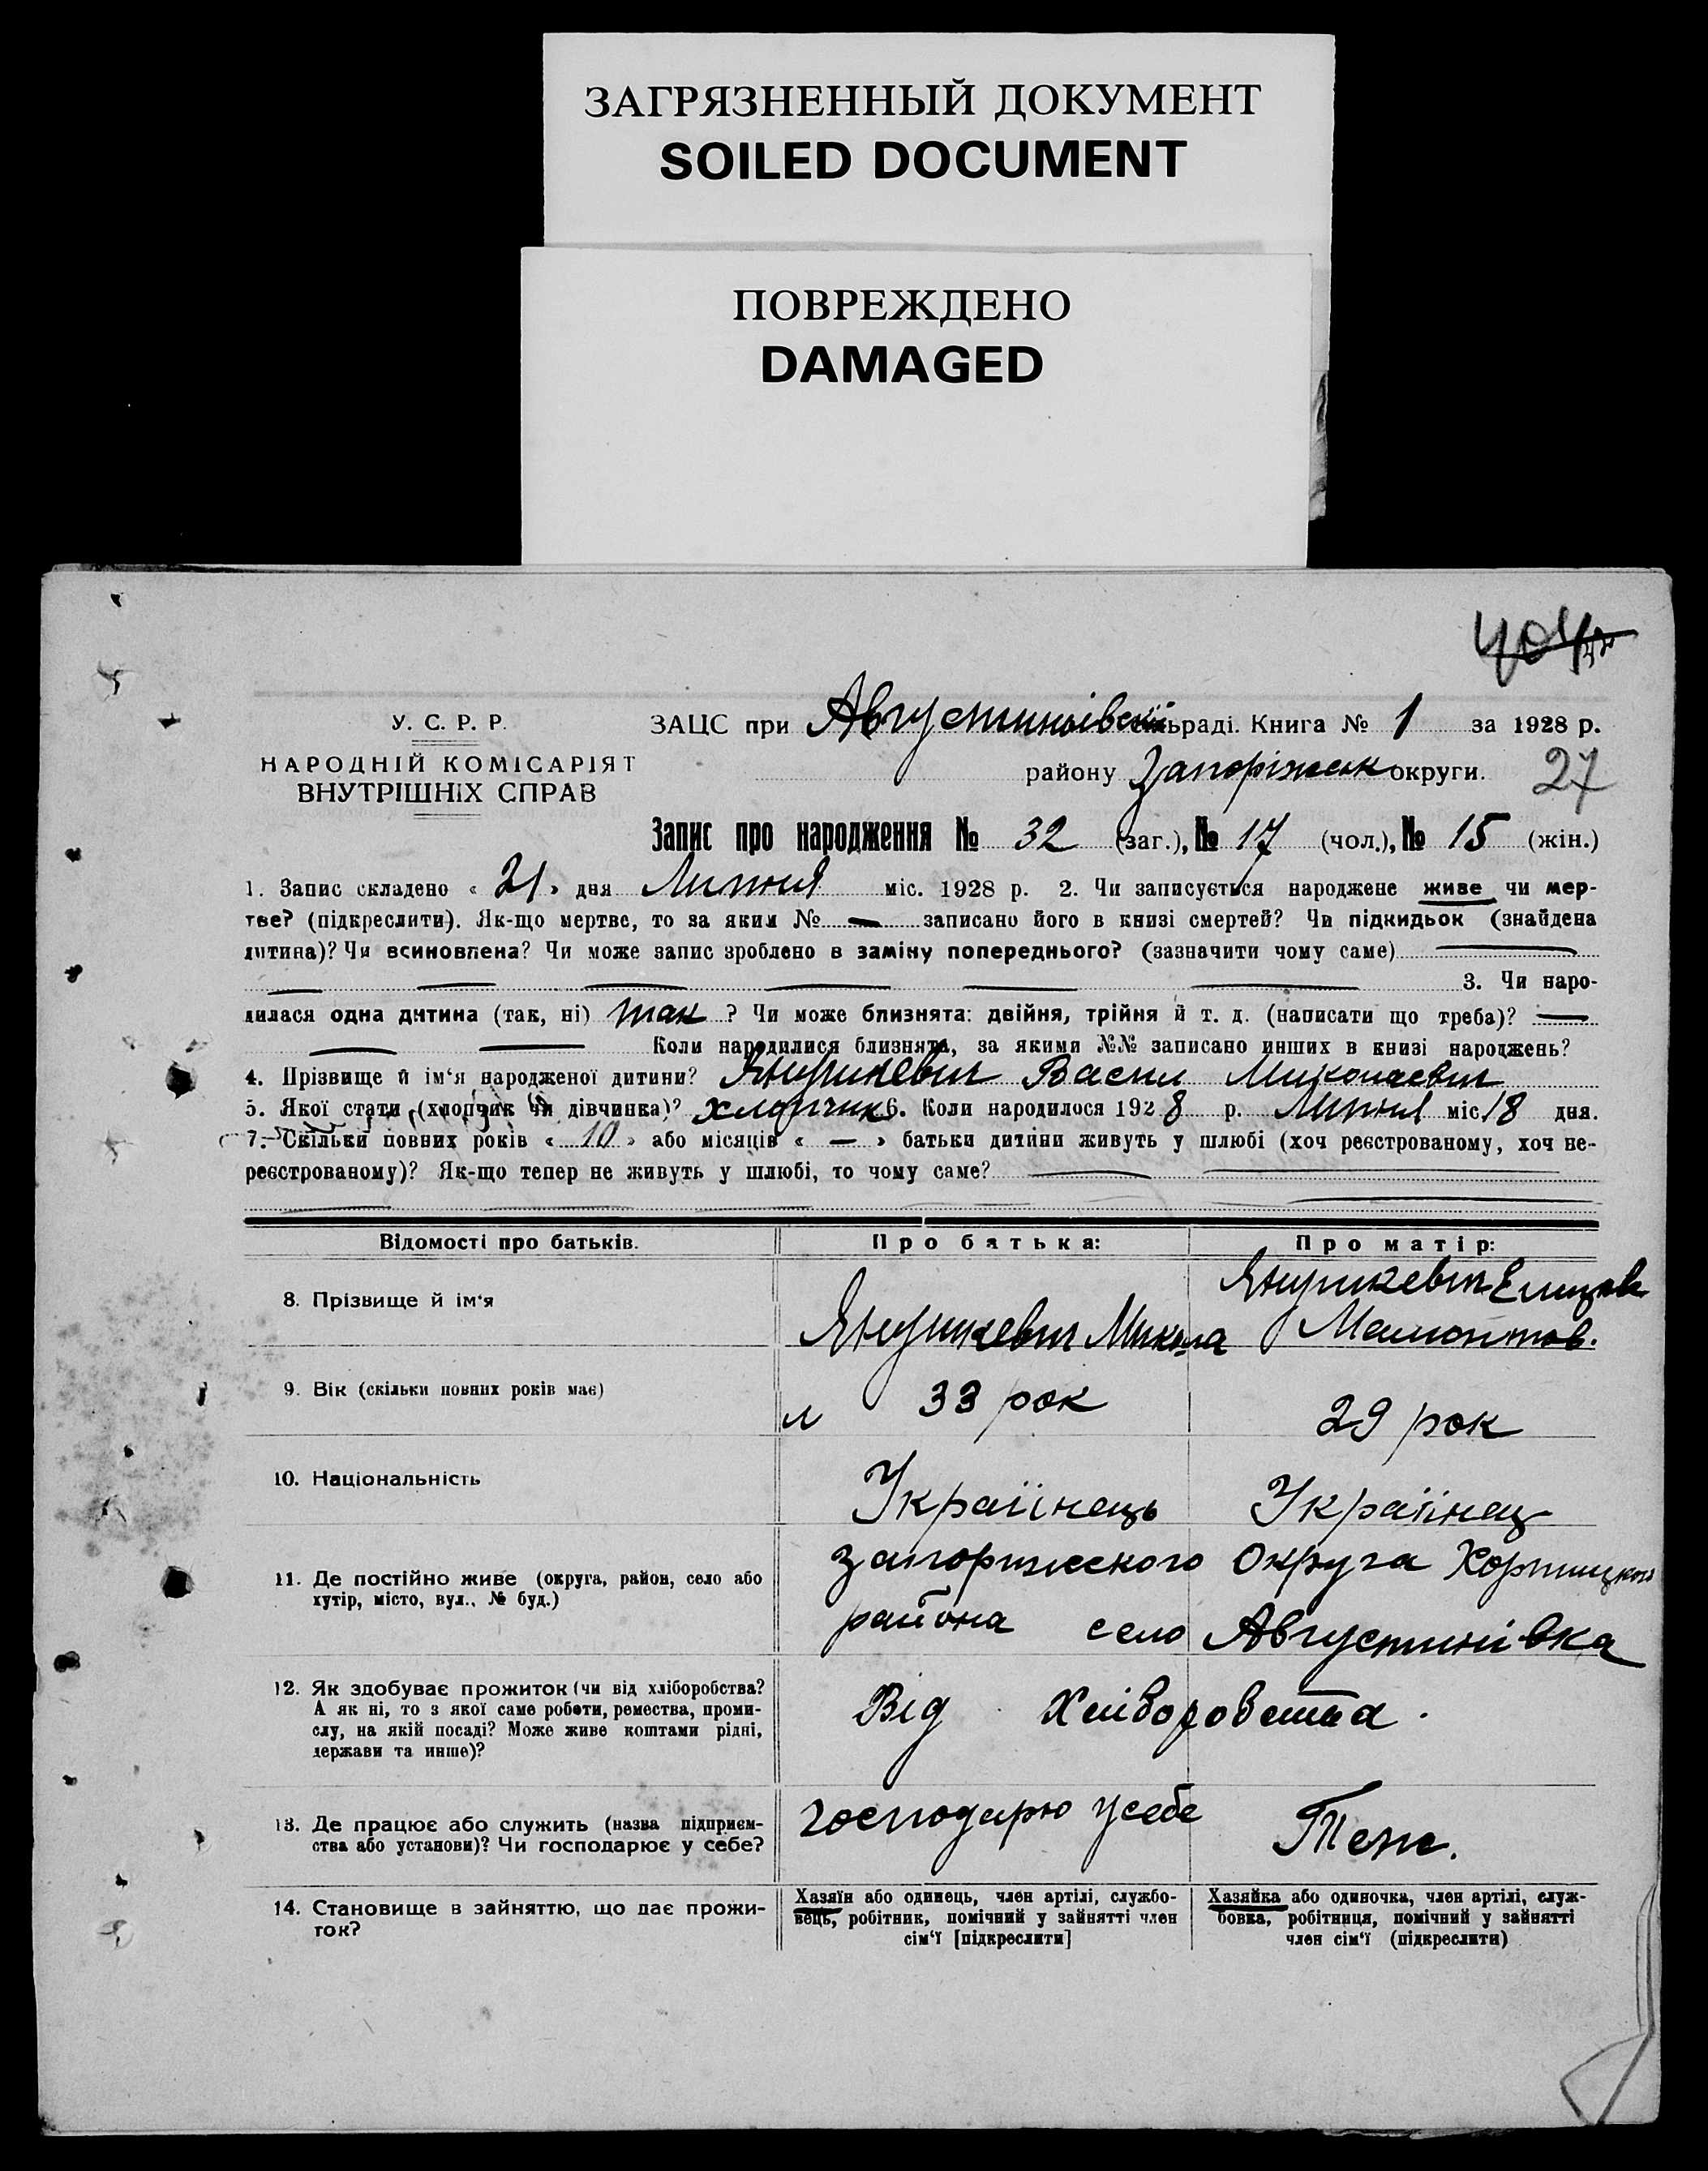 ЗАГРЯЗНЕННЫЙ ДОКУМЕНТ
SOILED DOCUMENT
ПОВРЕЖДЕНО
DAMAGED
У. С. Р. Р.
НАРОДНІЙ КОМІСАРІЯТ
ВНУТРІШНІХ СПРАВ
ЗАЦС при Августинівскій сільраді. Книга № 1 за 1928 р.
району Запоріжськ округи.
27
Запис про народження № 32 (заг.), № 17 (чол.), № 15 (жін.)
1. Запис складено « 21 » дня Липня міс. 1928 р. 2. Чи записується народжене живе чи мер-
тве? (підкреслити). Як-що мертве, то за яким № — записано його в книзі смертей? Чи підкидьок (знайдена
дитина)? Чи всиновлена? Чи може запис зроблено в заміну попереднього? (зазначити чому саме)
3. Чи наро-
дилася одна дитина (так, ні) так ? Чи може близнята: двійня, трійня й т. д. (написати що треба)? —
Коли народилися близнята, за якими №№ записано инших в книзі народжень?
4. Прізвище й ім‘я народженої дитини? Янушкевич Васил Миколаевич
5. Якої стати (хлопчик чи дівчинка)? хлопчик 6. Коли народилося 1928 р. Липня міс. 18 дня.
7. Скільки повних років « 10 » або місяців « — » батьки дитини живуть у шлюбі (хоч реєстрованому, хоч не-
реєстрованому)? Як-що тепер не живуть у шлюбі, то чому саме?
Відомості про батьків. Про батька: Про матір:
8. Прізвище й ім‘я Янушкевич Микола Янушкевич Елизав. Мамонтов.
9. Вік (скільки повних років має) 33 рок 29 рок
10. Національність Україінець Україінец
11. Де постійно живе (округа, район, село або
хутір, місто, вул., № буд.)
Запорижского Округа Хортицкого
района село Августинівка
12. Як здобуває прожиток (чи від хліборобства?
А як ні, то з якої саме роботи, ремества, проми-
слу, на якій посаді? Може живе коштами рідні,
держави та инше)?
Від Хліборовства.
13. Де працює або служить (назва підприєм-
ства або установи)? Чи господарює у себе?
Господарю у себе Теж.
14. Становище в зайняттю, що дає прожи-
ток?
Хазяїн або одинець, член артілі, службо-
вець, робітник, помічний у зайнятті член
сім‘ї [підкреслити]
Хазяйка або одиночка, член артілі, служ-
бовка, робітниця, помічний у зайнятті
член сім‘ї (підкреслити)